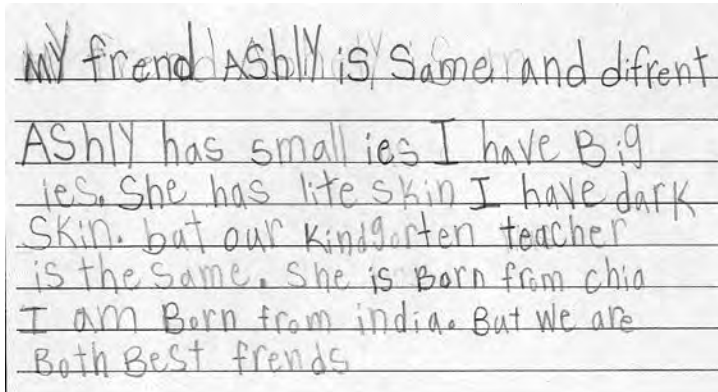 MY frend AShlY iS Same and difrent
AShlY has small ies I have Big
ies. She has lite skin I have dark
Skin. but our Kindgorten teacher
is the same. She is Born from chia
I am Born from india. But We are
Both Best frends